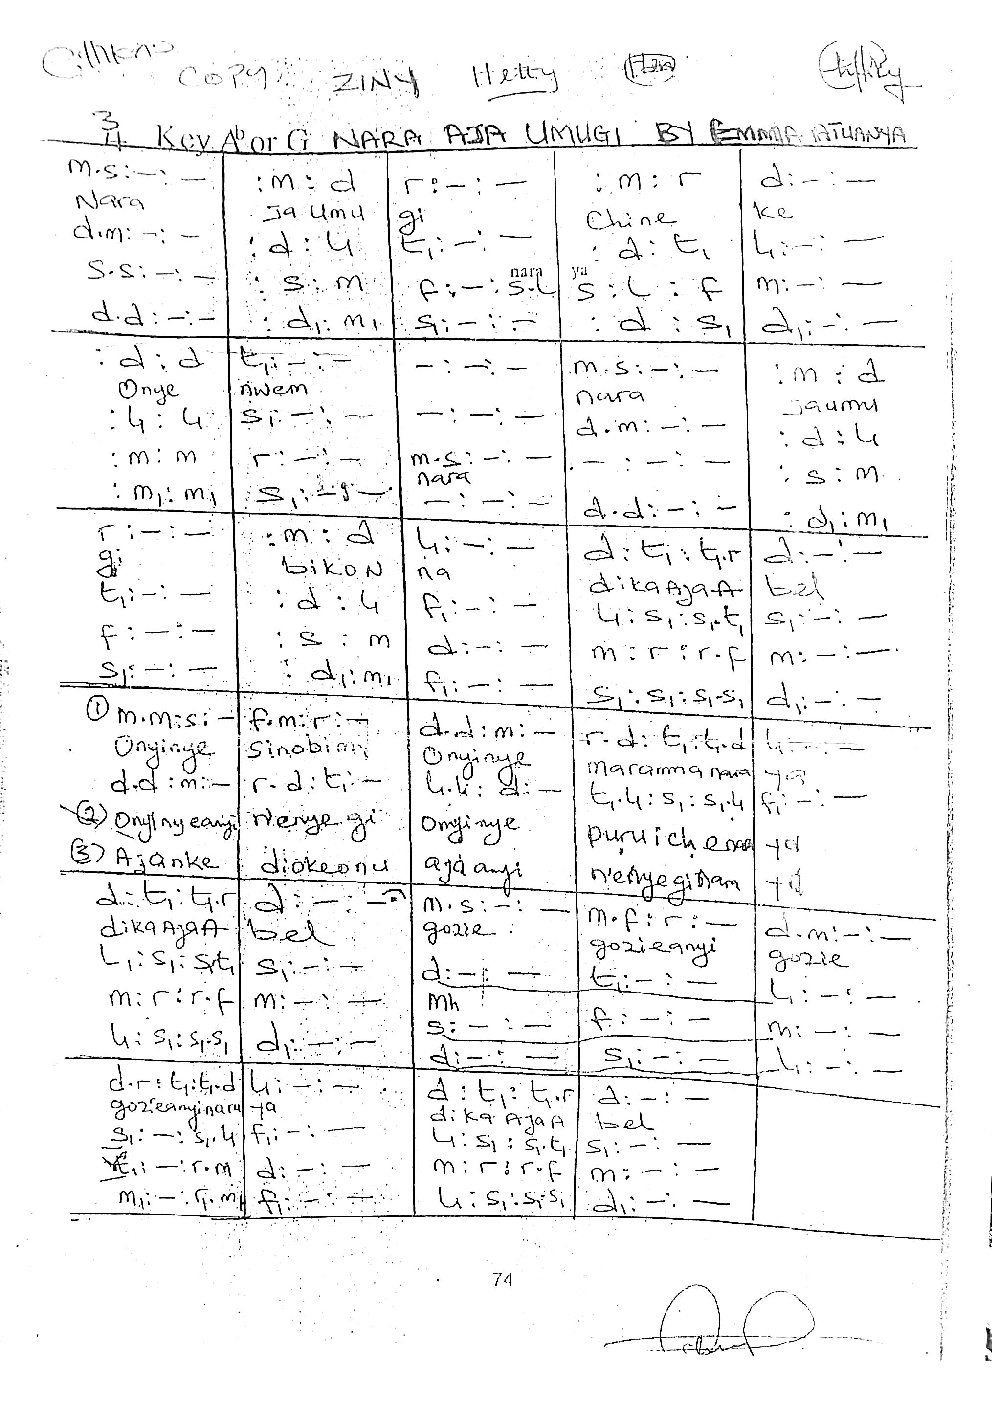 COPY ZINY Hetty
3/4 Key Ab or G NARA AJA UMUGI BY EMMA ATUANYA
m.s:–:– | :m:d | r:–:– | :m:r | d:–:–
Nara | Ja Umu | gi | Chine | ke
d.m:–:– | :d:l₁ | t₁:–:– | :d:t₁ | l₁:–:–
nara | ya
s.s:–:– | :s:m | f:–:s.l | s:l:f | m:–:–
d.d:–:– | :d₁:m₁ | s₁:–:– | :d:s₁ | d₁:–:–
:d:d | t₁:–:– | –:–:– | m.s:–:– | :m:d
Onye | nwem | nara | Jaumu
:l₁:l₁ | s₁:–:– | –:–:– | d.m:–:– | :d:l₁
:m:m | r:–:– | m.s:–:– | –:–:– | :s:m
nara
:m₁:m₁ | s₁:–:– | –:–:– | d.d:–:– | :d₁:m₁
r:–:– | :m:d | l₁:–:– | d:t₁:t₁.r | d:–:–
gi | biKoN | na | dikaAjaA | bel
t₁:–:– | :d:l₁ | f₁:–:– | l₁:s₁:s₁.t₁ | s₁:–:–
f:–:– | :s:m | d:–:– | m:r:r.f | m:–:–
s₁:–:– | :d₁:m₁ | f₁:–:– | s₁:s₁:s₁.s₁ | d₁:–:–
① m.m:s:– | f.m:r:– | d.d:m:– | r.d:t₁:t₁.d | l₁:–:–
Onyinye | sinobim | Onyinye | maramma nara | ya
d.d:m:– | r.d:t₁:– | l₁.l₁:d:– | t₁.l₁:s₁:s₁.l₁ | f₁:–:–
(2) Onyinyeanyi | n'enye gi | onyinye | puruichenaa | ya
(3) Ajanke | diokeonu | aja anyi | n'enyeginam | ya
d:t₁:t₁.r | d:–:– | m.s:–:– | m.f:r:– | d.m:–:–
dikaAjaA | bel | gozie | gozieanyi | gozie
l₁:s₁:s₁.t₁ | s₁:–:– | d:–:– | t₁:–:– | l₁:–:–
Mh
m:r:r.f | m:–:– | s:–:– | f:–:– | m:–:–
l₁:s₁:s₁.s₁ | d₁:–:– | d:–:– | s₁:–:– | l₁:–:–
d.r:t₁:t₁.d | l₁:–:– | d:t₁:t₁.r | d:–:–
gozieanyinara | ya | dika AjaA | bel
s₁:–:s₁.l₁ | f₁:–:– | l₁:s₁:s₁.t₁ | s₁:–:–
t₁:–:r.m | d:–:– | m:r:r.f | m:–:–
m₁:–:r₁.m₁ | f₁:–:– | l₁:s₁:s₁.s₁ | d₁:–:–
74